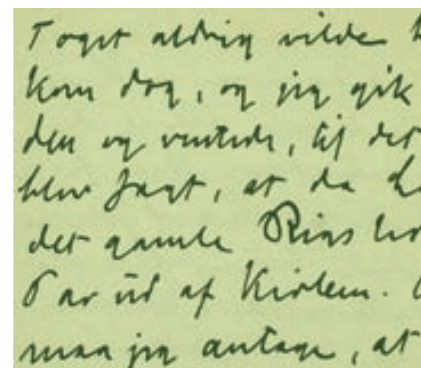 Toget aldrig vilde
kom dog, og jeg gik
den og ventede, til det
blev sagt, at da
det gamle Rigs
Par ud af Kirken.
maa jeg antage, at